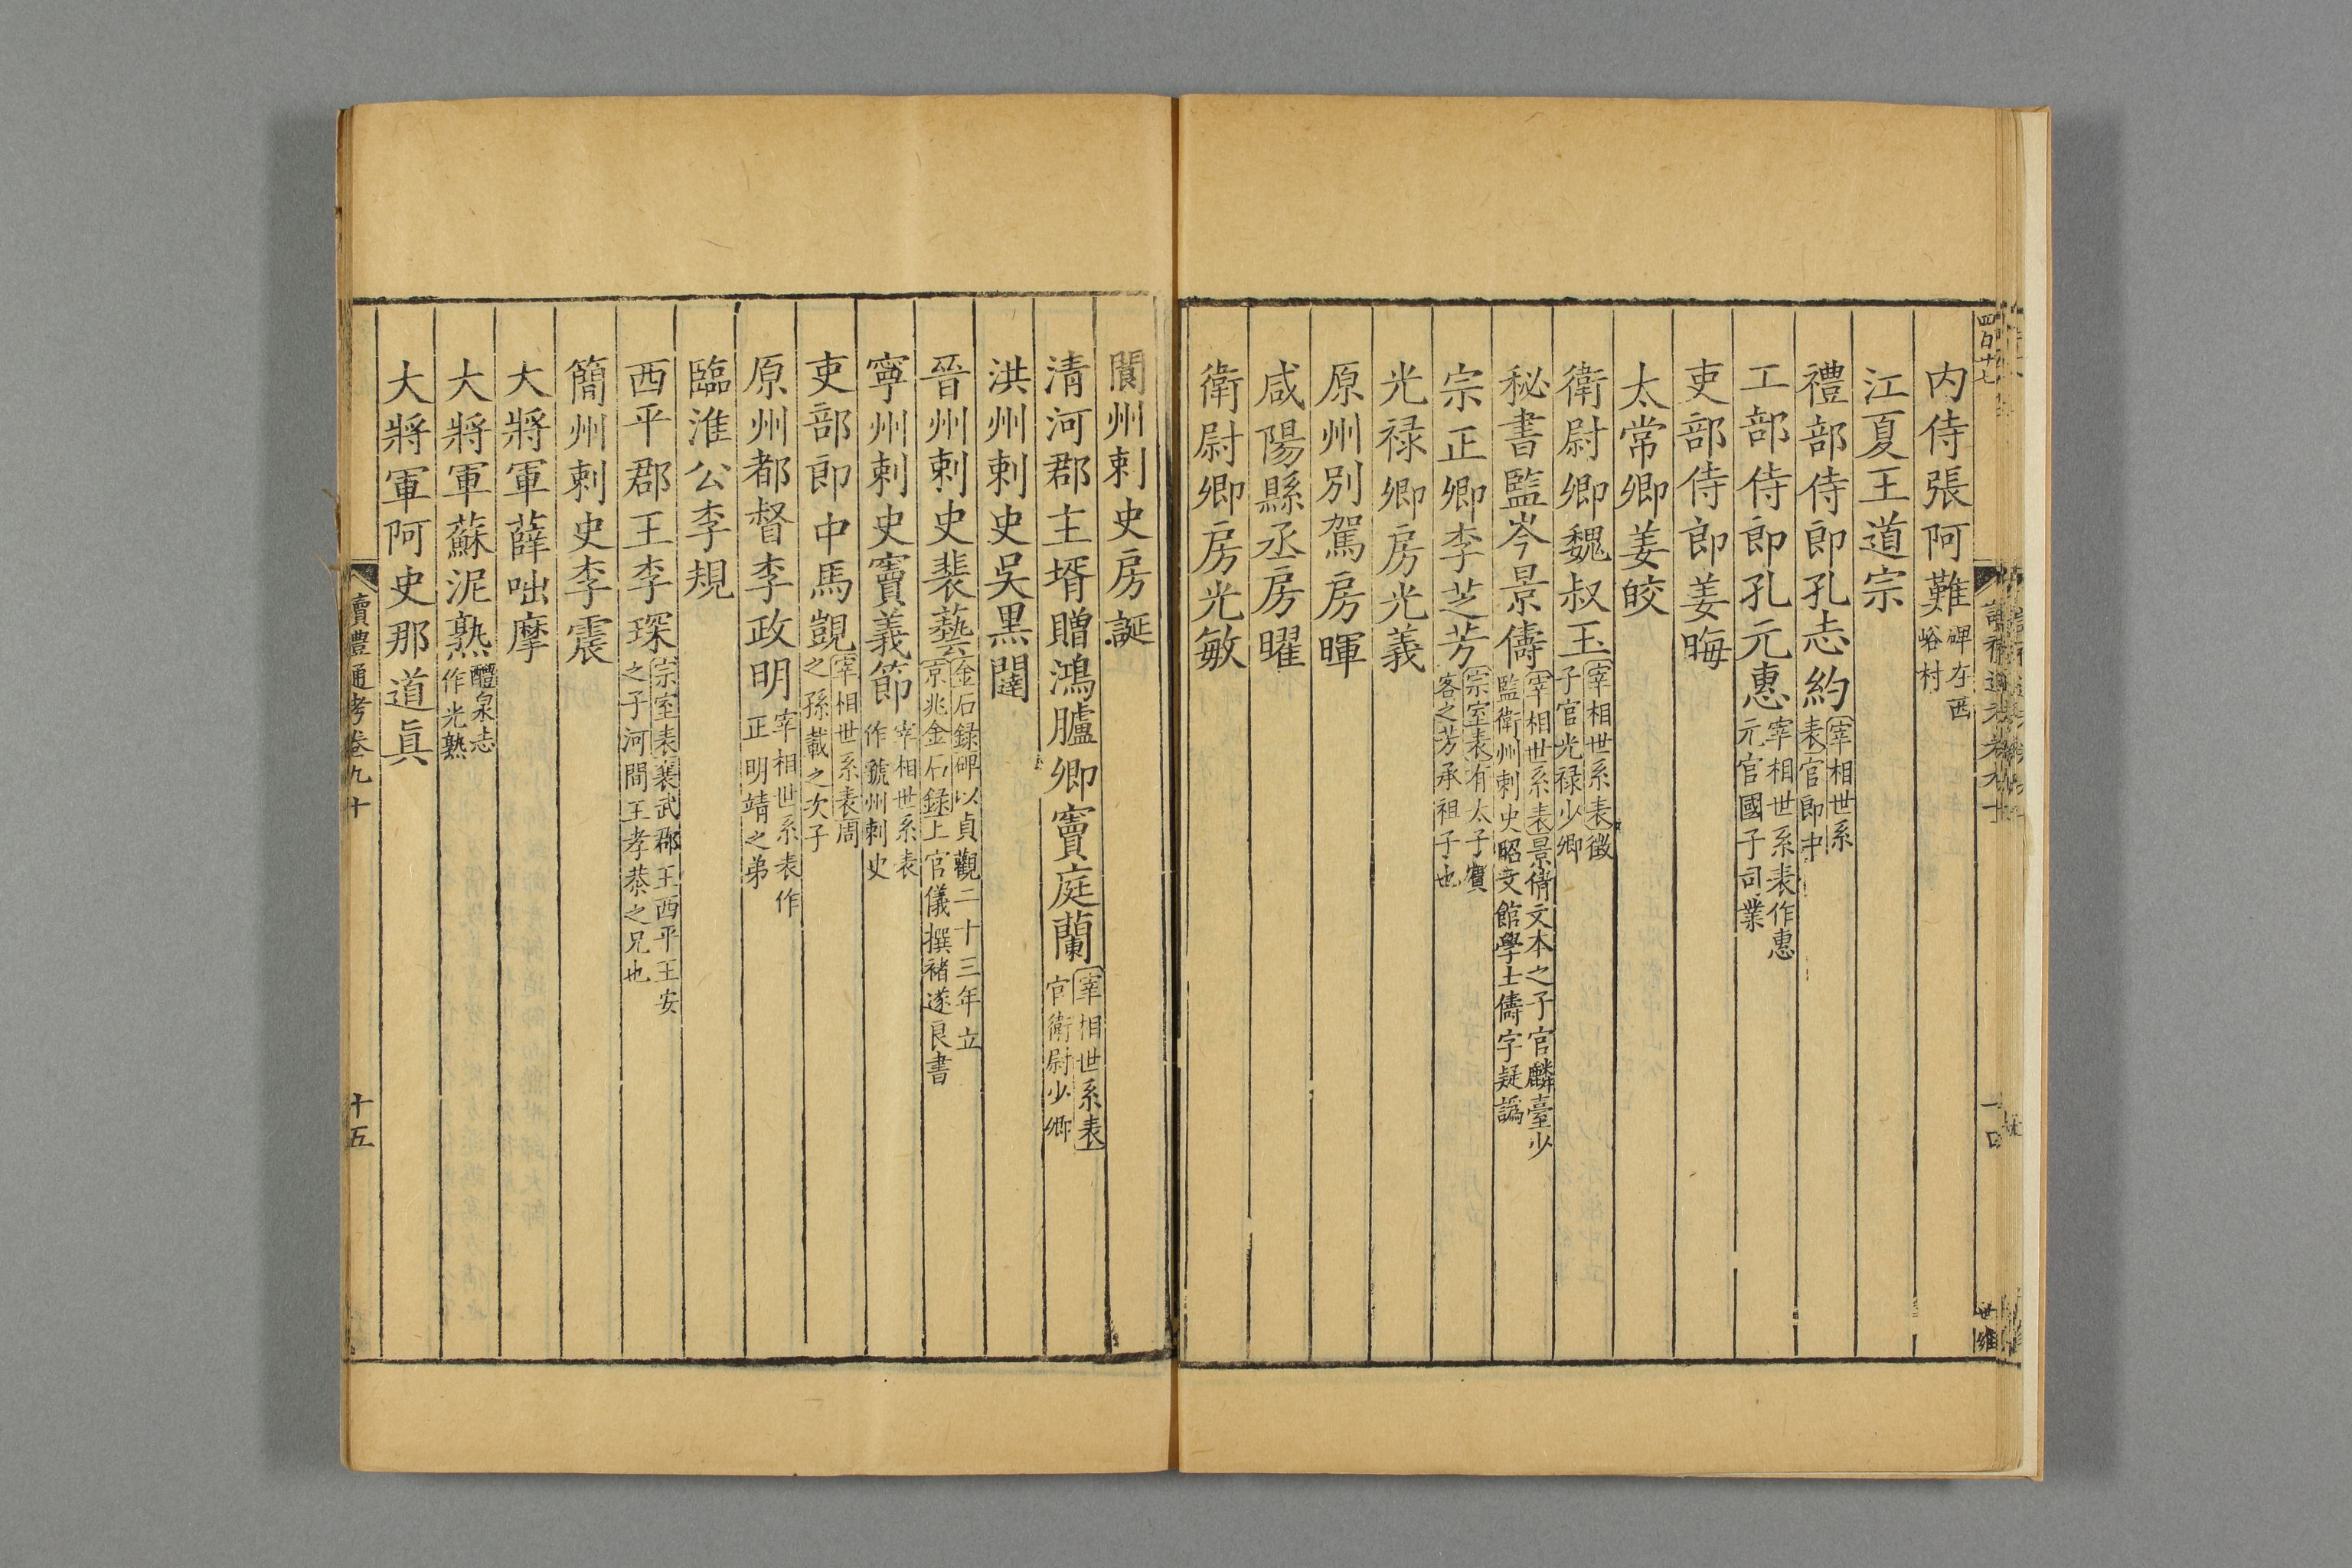 内侍張阿難碑在西峪村
江夏王道宗
禮部侍郎孔志約宰相世系表官郎中
工部侍郎孔元惠宰相世系表作惠元官國子司業
吏部侍郎姜晦
太常卿姜皎
衛尉卿魏叔玉宰相世系表徵子官光禄少卿
秘書監岑景儔宰相世系表景倩文本之子官麟臺少監衛州刺史昭文館學士儔字疑譌
宗正卿李芝芳宗室表有太子賓客之芳承祖子也
光禄卿房光義
原州別駕房暉
咸陽縣丞房曜
衛尉卿房光敏
閬州刺史房誕
清河郡主壻贈鴻臚卿竇庭蘭宰相世系表官衛尉少卿
洪州刺史吳黑闥
晉州刺史裴藝金石録碑以貞觀二十三年立京兆金石録上官儀撰褚遂良書
寧州刺史竇義節宰相世系表作虢州刺史
吏部郎中馬覬宰相世系表周之孫載之次子
原州都督李政明宰相世系表作正明靖之弟
臨淮公李規
西平郡王李琛宗室表襄武郡王西平王安之子河間王孝恭之兄也
簡州刺史李震
大將軍薛咄摩
大將軍蘇泥熟醴泉志作光熟
大將軍阿史那道眞
讀禮通考卷九十
十五